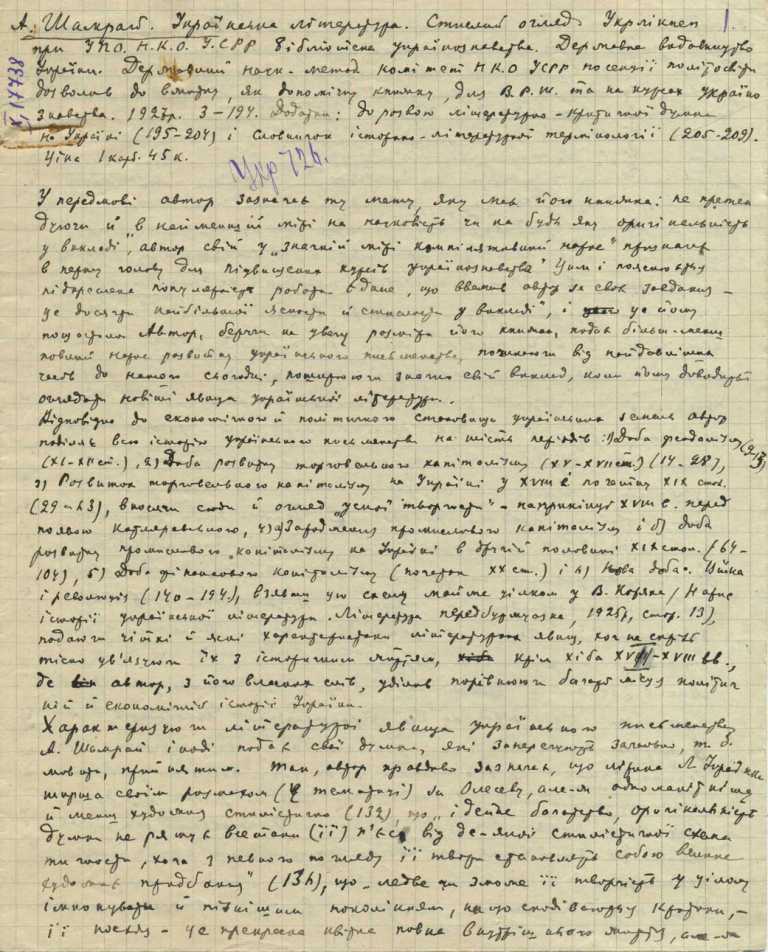 А. Шамрай. Українська література. Стислий огляд. Укрлікнеп 1.
при УПО. Н.К.О. УСРР Бібліотека українознавства. Державне видавництво
України. Державний наук.-метод. комітет НКО УСРР по секції політосвіти
дозволив до вжитку, як допомічну книжку, для В.Р.Ш. та на курсах україно
знавства. 1927р. 3–194. Додатки: до розвою літературно-критичної думки
на Україні (195–204) і словничок історико-літературної термінології (205–209).
Ціна 1 карб. 45 к.
Укр 726.
У передмові автор зазначає ту мету, яку має його книжка: не претен
дуючи й „в найменшій мірі на науковість чи на будь яку оригінальність
у викладі", автор свій у „значній мірі компілятивний нарис" призначає
в першу голову для підвищених курсів українознавства" Цим і пояснюється
підкреслена популярність роботи
це досягти найбільшої ясности й стислости у викладі", і це йому
пощастило. Автор, беручи на увагу розміри його книжки, подає більш-менш
повний нарис розвитку українського письменства, починаючи від найдавніших
часів до нашого сьогодні, поширюючи значно свій виклад, коли йому доводиться
оглядати новіші явища української літератури.
Відповідно до економічного й політичного становища українських земель автор
поділяє всю історію українського письменства на шість періодів: 1) Доба феодалізму
(XI–XII ст.), 2) Доба розвитку торговельного капіталізму (XV–XVII ст.) (14–28),
3) Розвиток торговельного капіталізму на Україні у XVIII й початку XIX стол.
(29–63), вносячи сюди й огляд „усної творчости" наприкінці XVIII в. перед
появою Котляревського, 4) а) Зародження промислового капіталізму і б) доба
розвитку промислового капіталізму на Україні в другій половині XIX стол. (64–
104), 5) Доба фінансового капіталізму (початок XX ст.) і 6) Нова доба. Війна
і революція (140–194), взявши цю схему майже цілком у В. Коряка / Нарис
історії української літератури. Література передбуржуазна, 1925р., стор. 13),
подаючи чіткі й ясні характеристики літературних явищ, хоч не скрізь
тісно ув'язуючи їх з історичним життям, крім хіба XVII–XVIII вв.,
де автор, з його власних слів, уділив порівнюючи багато місця політич
ній й економічній історії України.
Характеризуючи літературні явища українського письменства,
А. Шамрай іноді подає свої думки, які заперечують загально, т. б.
мовити, прийнятим. Так, автор правдиво зазначає, що лірика Л. Українки
ширша своїм розмахом (у тематиці) за Олесеву, але й одноманітніша
й менш художня стилістично (132), що „ідейне багатство, оригінальність
думки не рятує все таки (її) п'єс від де-якої стилістичної схема
тичности, хоча з певного погляду її твори становлять собою велике
художнє придбання" (136), що „ледве чи зможе її творчість у цілому
імпонувати й пізнішим поколінням, на що сподіваються критики,–
її поезія – це прекрасна квітка повна внутрішнього життя, але